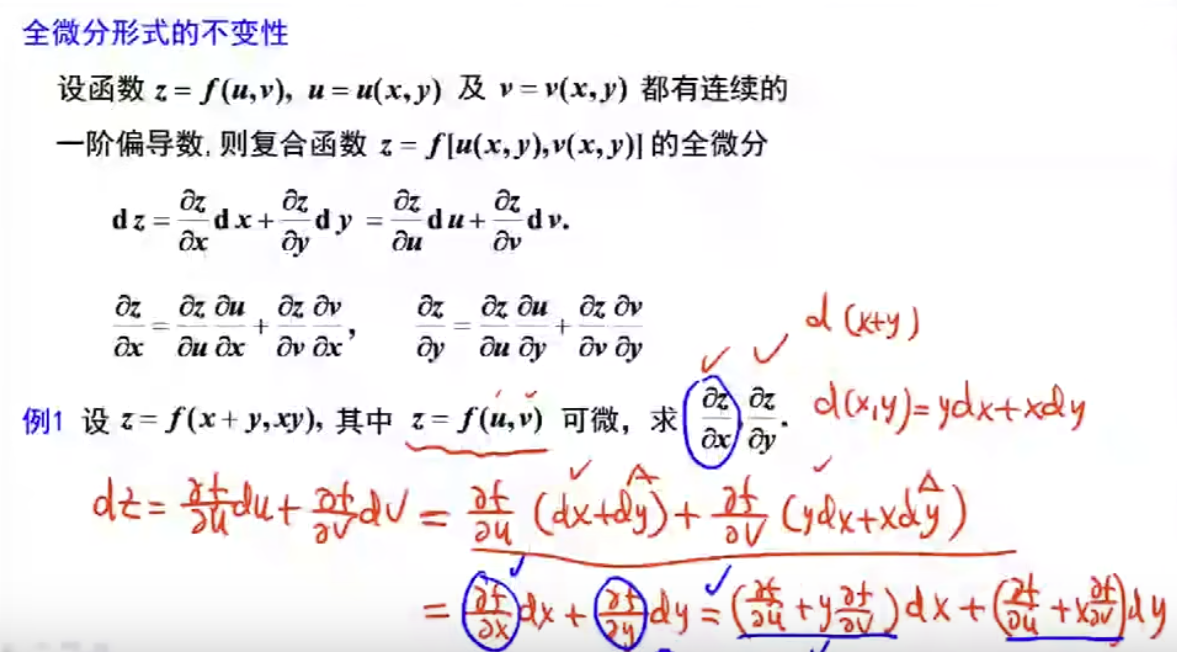 全微分形式的不变性
设函数 z = f(u,v), u = u(x,y) 及 v = v(x,y) 都有连续的
一阶偏导数, 则复合函数 z = f[u(x,y),v(x,y)] 的全微分
dz = ∂z/∂x dx + ∂z/∂y dy = ∂z/∂u du + ∂z/∂v dv.
∂z/∂x = ∂z/∂u ∂u/∂x + ∂z/∂v ∂v/∂x, ∂z/∂y = ∂z/∂u ∂u/∂y + ∂z/∂v ∂v/∂y
d(x+y)
例1 设 z = f(x + y,xy), 其中 z = f(u,v) 可微，求 ∂z/∂x, ∂z/∂y.
d(x,y)=ydx+xdy
dz = ∂f/∂u du + ∂f/∂v dv = ∂f/∂u (dx+dy) + ∂f/∂v (ydx+xdy)
= ∂f/∂x dx + ∂f/∂y dy = (∂f/∂u + y ∂f/∂v) dx + (∂f/∂u + x ∂f/∂v) dy